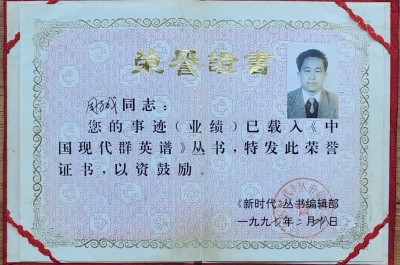 荣誉證書
同志：
您的事迹（业绩）已载入《中
国现代群英谱》丛书，特发此荣誉
证书，以资鼓励。
《新时代》丛书编辑部
一九九七年二月日